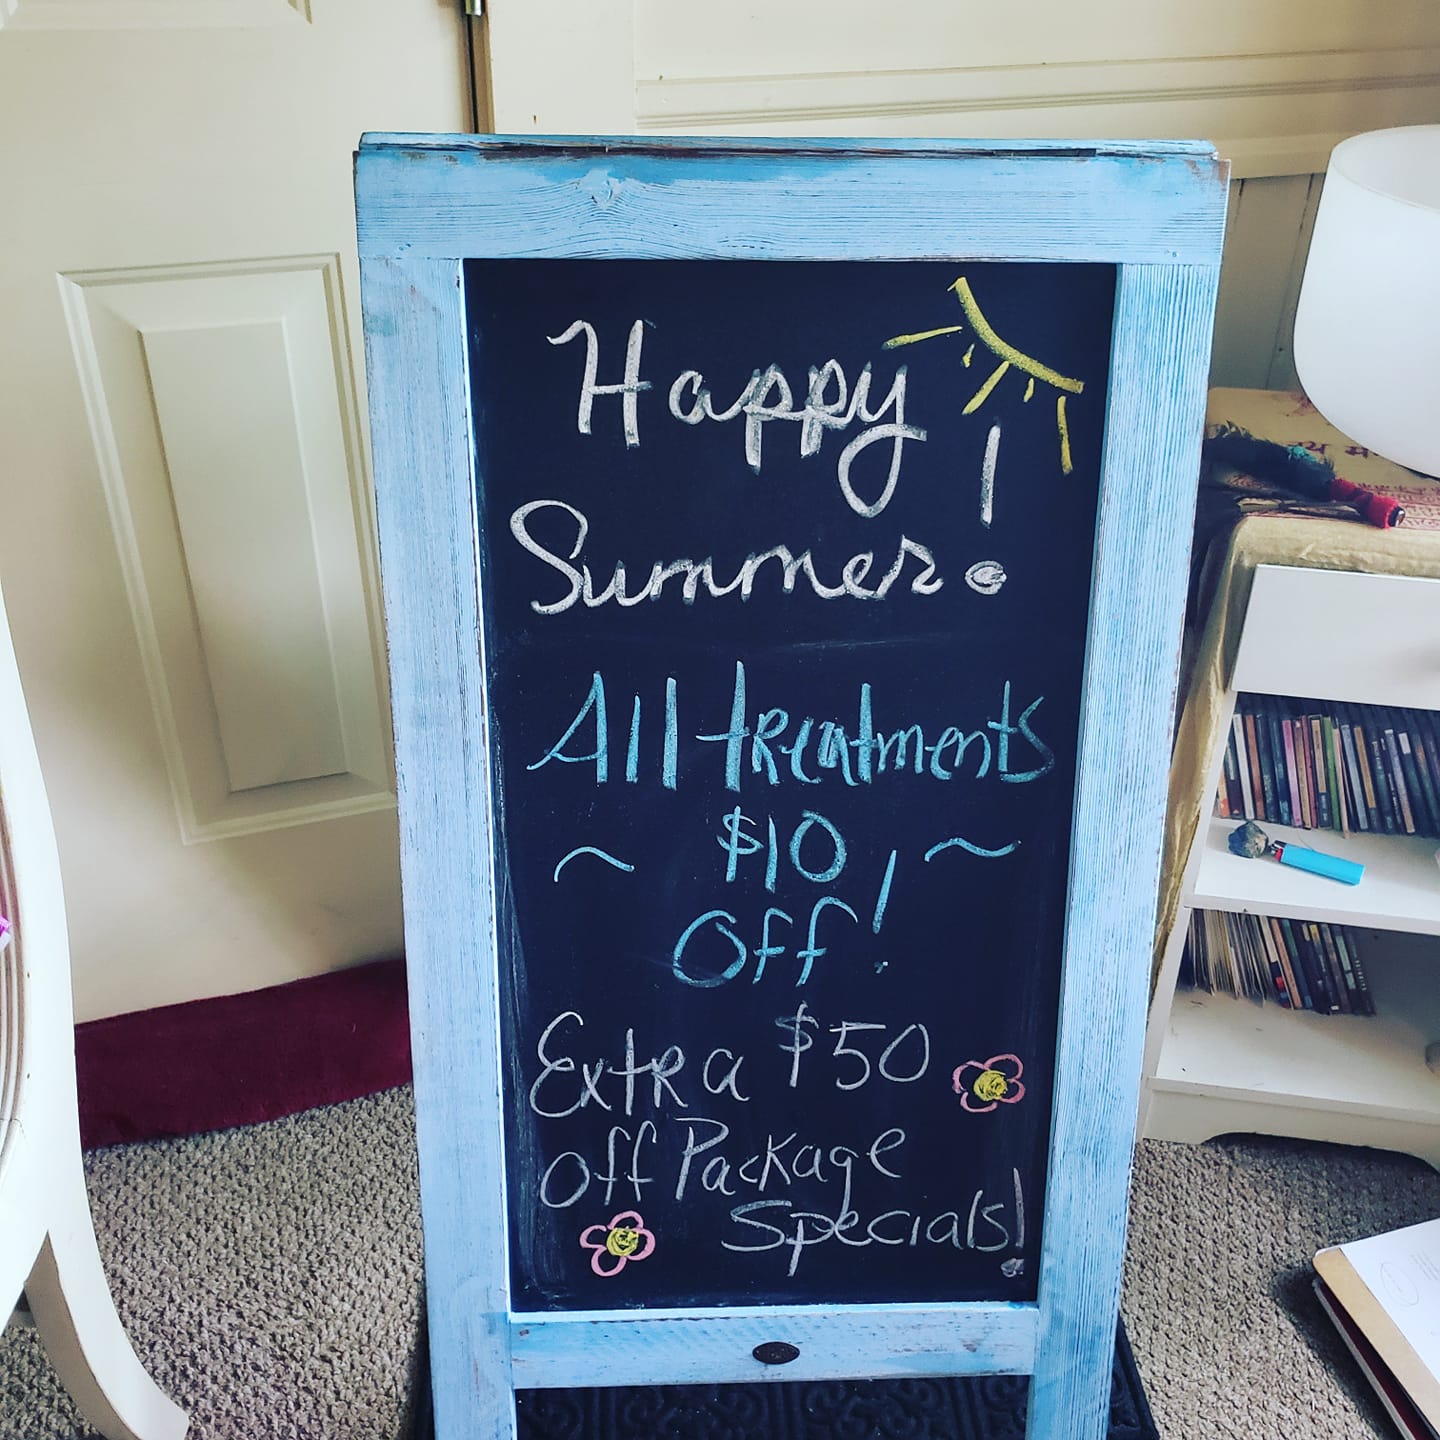 Happy
Summer!
All treatments
~ $10 ~
Off!
Extra $50
Off Package
Specials!